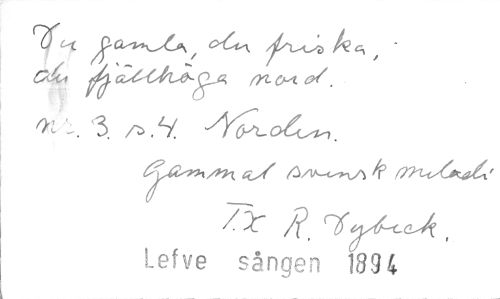 Du gamla, du friska,
du fjällhöga nord.
nr. 3. s. 4. Norden.
Gammal svensk melodi
T.x R. Dybeck.
Lefve sången 1894